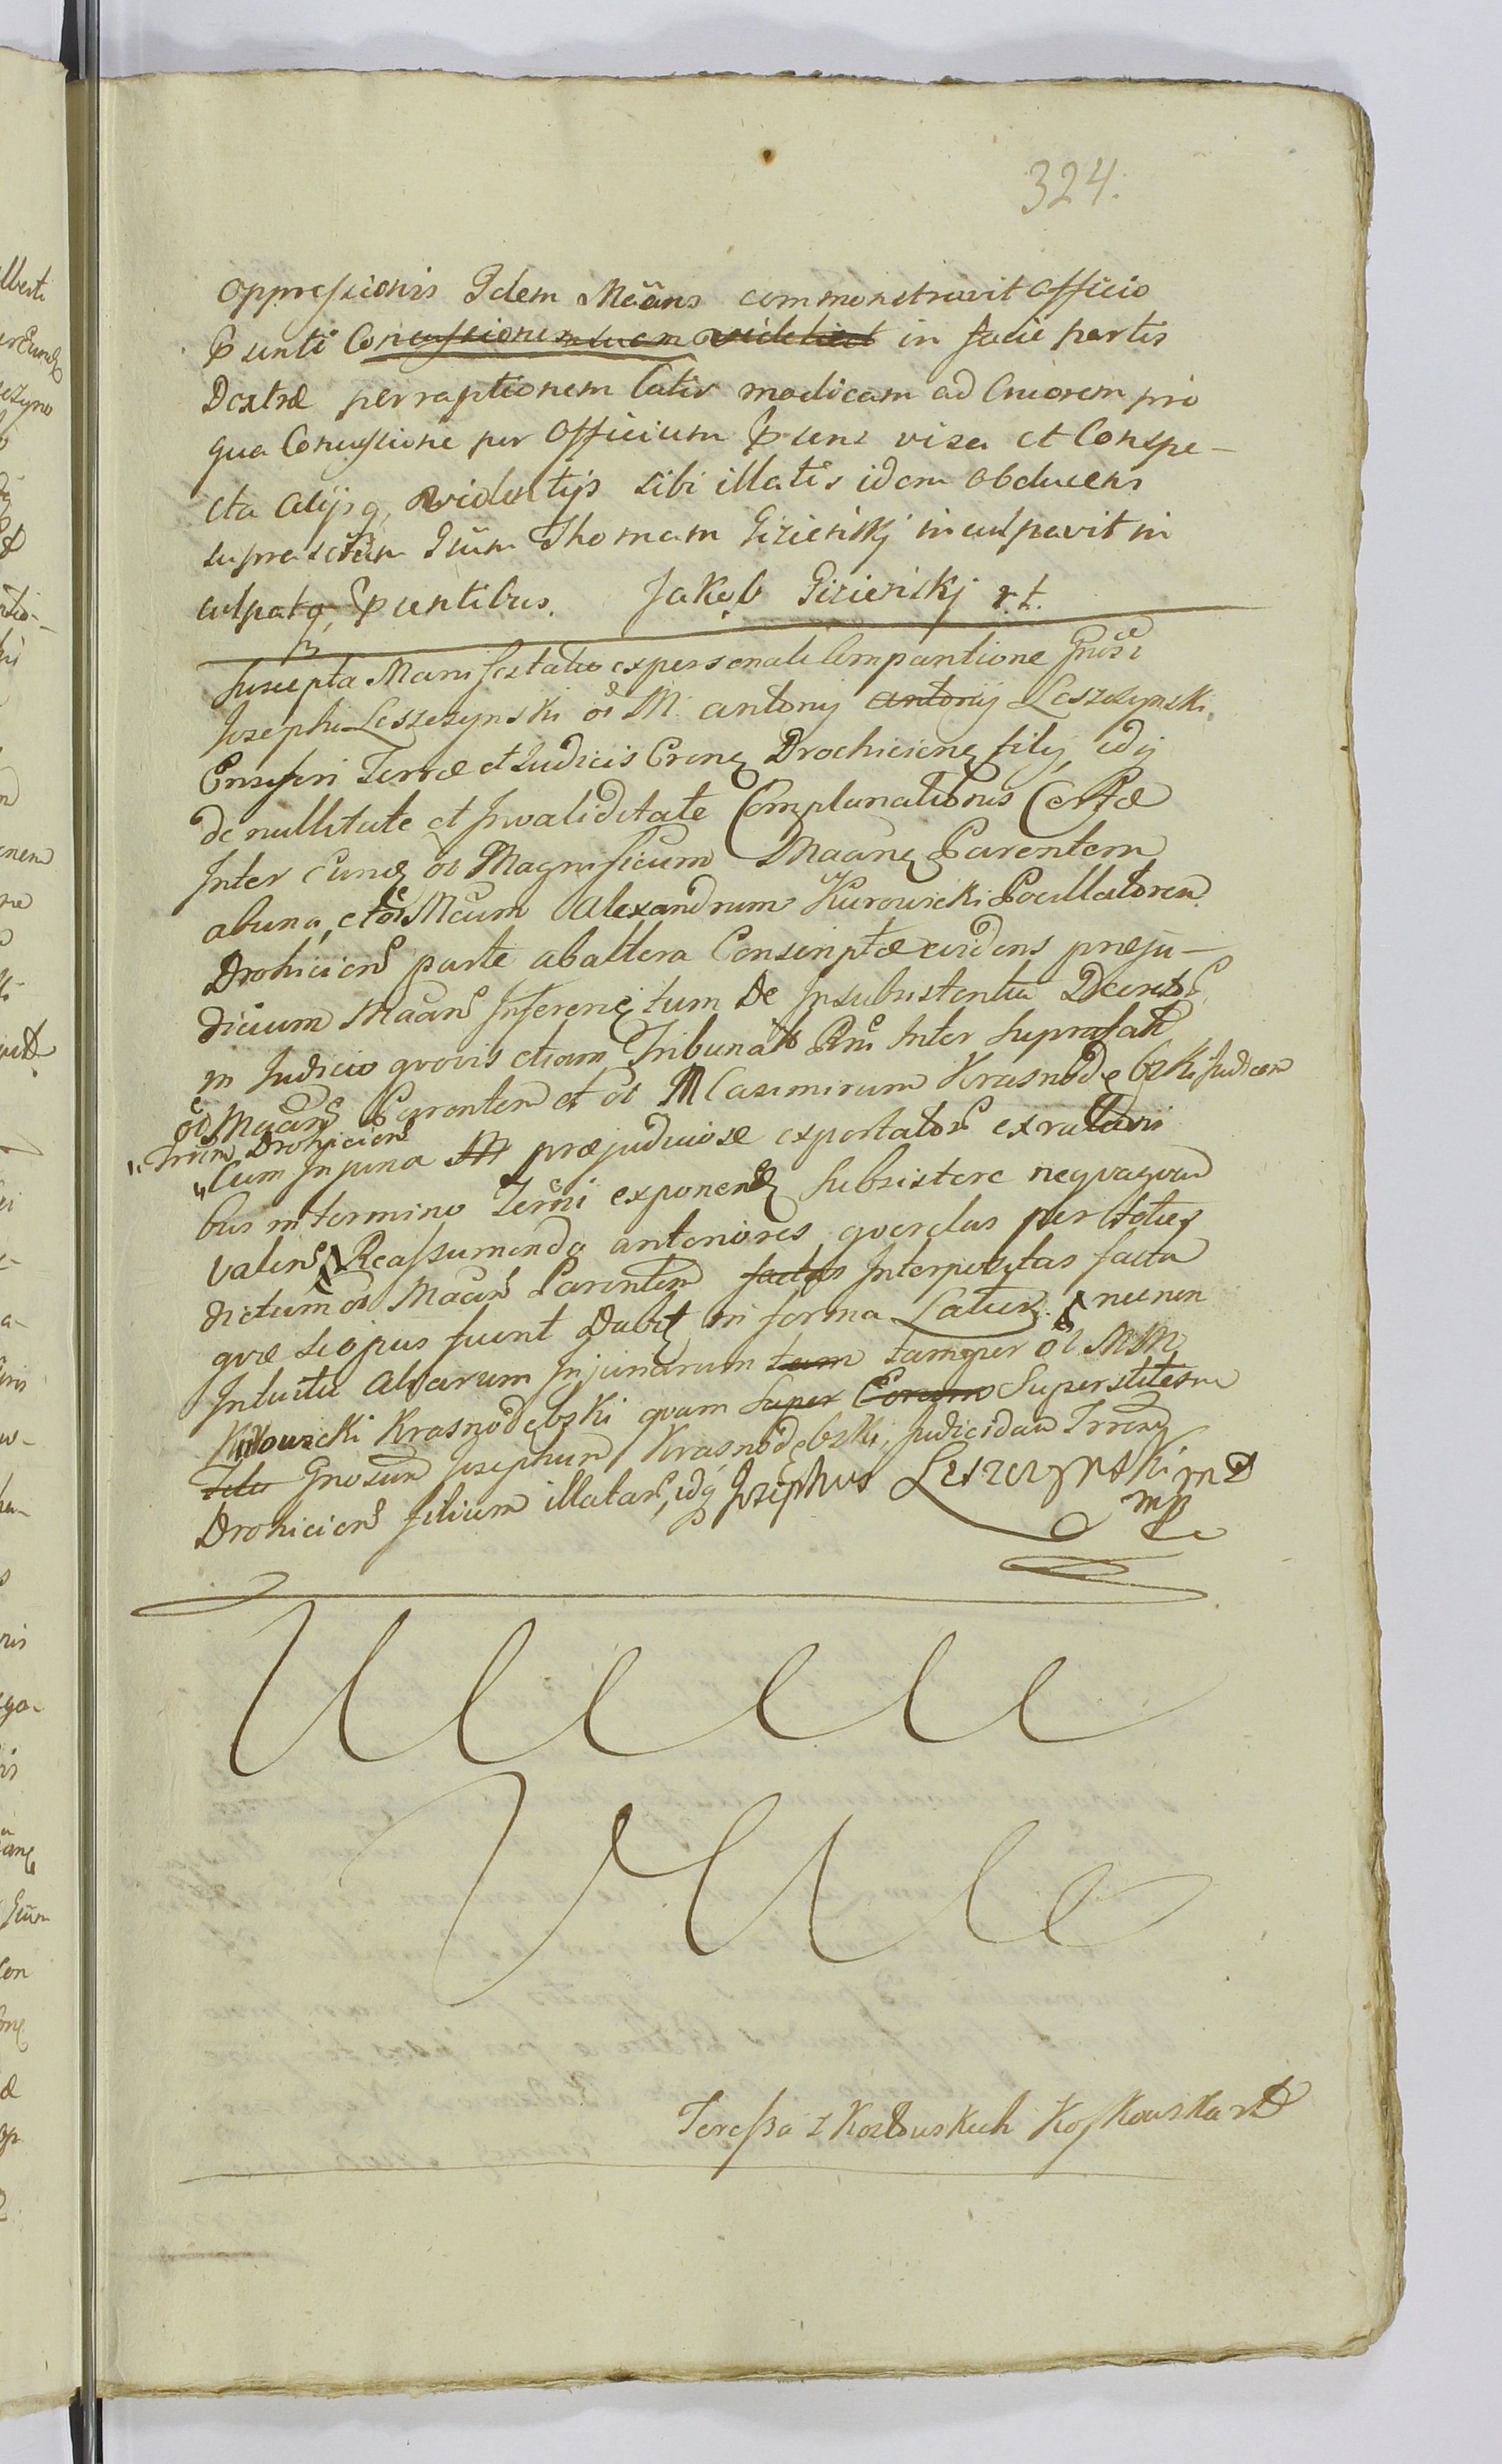 324.
oppressionis Idem Mãans commonstravit officio
Pñti Concussionem suam videlicet in facie partis
Dextræ per raptionem Cutis modicam ad Cruorem pro
qua Concussione per Officium Pñs visa et Conspe-
cta Alijsq, violentijs sibi illatis idem Obducens
suprascrtum Gsum Thomam Gizieriskj inculpavit in
culpatq, Pñtibus. Jakób Gizieriskj r.t.
Suscepta Manifestatio ex personali Comparitione Gnosi
Josephi Leszczynski ol M. Antonij Antonij Leszczynski
Ensiferi Terræ et Judicis Crens Drochiciens filij, idq
de nullitate et Invaliditate Complanationis Certæ
Inter Eund ol Magnificum Maans Parentem
ab una, et ol Mcum Alexandrum Kurowicki Pocillatorem
Drohiciens parte ab altera Conscriptæ evidens præju-
dicium Maans Inferens tum De Insubsistentia Decretor
in Judicio quovis etiam Tribunali Rni Inter Supradictum
ol Maans Parentem et ol M Casimirum Krasnodębski Judicem
"Trrem Drohiciens
"Cum Injuria M præjudiciose exportator ex rationi
bus in termino Termi exponens Subsistere nequaquam
valens Reassumendo anteriores querelas per totie
dictum ol Maans Parentem factas Interpositas facta
quæ si opus fuerit Dabit in forma Latius nec non
Intuitu Aliarum Injuriarum tam tam per ol MM
Kurowicki Krasnodębski quam Super Eorum Superstitem
Gnosum Josephum Krasnodębski, Judicidam Trrens
Drohiciens filium illatar, idq Josephus Leszczynski mp
mp
Teressa z Kozłowskich Koskowska